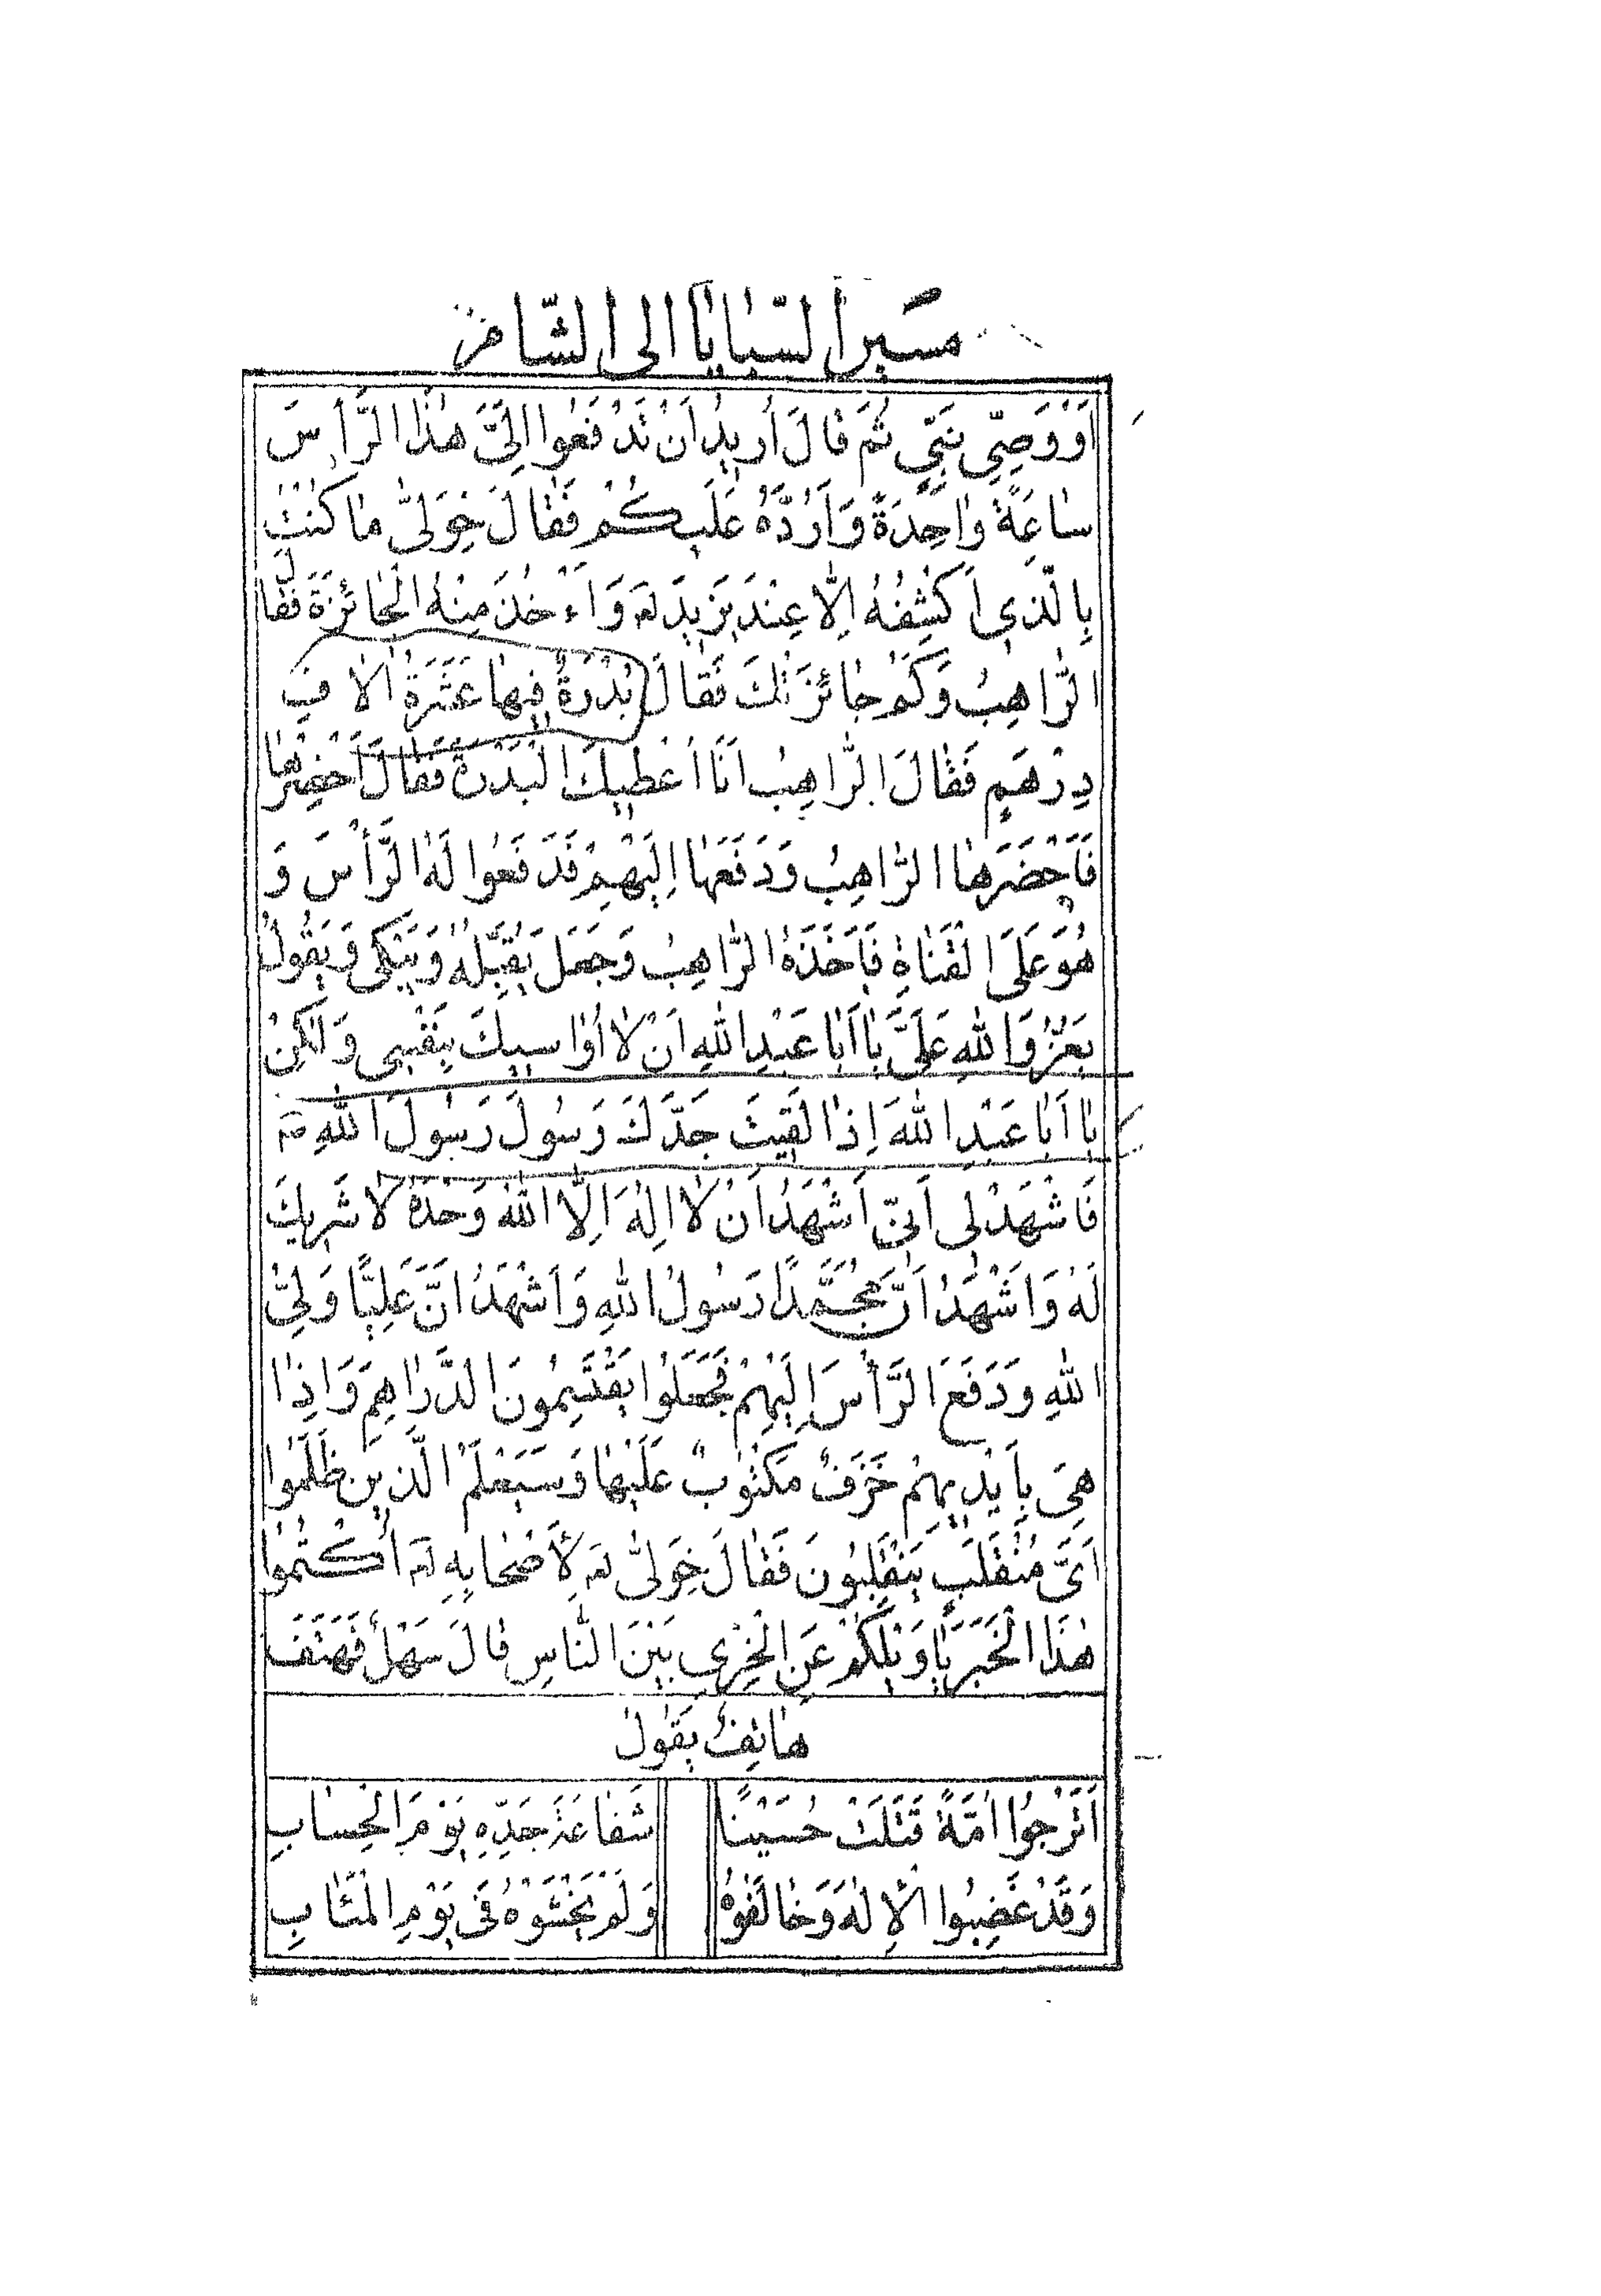 مسير السبايا الى الشام
اَوْ وَصِيّ نَبِيّ ثُمَّ قالَ اُريدُ اَنْ تَدْفَعُوا اِلَيَّ هٰذَا الرَّأْسَ
ساعَةً واحِدَةً وَاَرُدُّهُ عَلَيكُمْ فَقالَ خَوَلىُّ ما كُنْتُ
بِالَّذي اَكْشِفُهُ اِلّا عِنْدَ يَزيدَ لع وَاءَخُذَ مِنْهُ الْجائِزَةَ فَقالَ
الرّاهِبُ وَكَمْ جائِزَتُكَ فَقالَ بُدْرَةٌ فيها عَشَرَةُ الافِ
دِرْهَمٍ فَقالَ الرّاهِبُ اَنَا اُعْطيكَ الْبَدْرَةَ فَقالَ اَحْضِرْها
فَاَحْضَرَهَا الرّاهِبُ وَدَفَعَها اِلَيْهِمْ فَدَفَعُوا لَهُ الرَّأْسَ وَ
هُوَ عَلَى الْقَناةِ فَاَخَذَهُ الرّاهِبُ وَجَعَلَ يُقَبِّلُهُ وَيَبْكي وَيَقُولُ
يَعُزُّ وَاللهِ عَلَيَّ يا اَبا عَبْدِ اللهِ اَنْ لا اُواسيكَ بِنَفْسي وَلكِنْ
يا اَبا عَبْدِ اللهِ اِذا لَقيتَ جَدَّكَ رَسُولَ رَسُولَ اللهِ ص
فَاشْهَدْ لي اَنّي اَشْهَدُ اَنْ لا اِلهَ اِلَّا اللهُ وَحْدَهُ لا شَريكَ
لَهُ وَاَشْهَدُ اَنَّ مُحَمَّدًا رَسُولُ اللهِ وَاَشْهَدُ اَنَّ عَلِيًّا وَلِيُّ
اللهِ وَدَفَعَ الرَّأْسَ اِلَيْهِمْ فَجَعَلُوا يَقْتَسِمُونَ الدَّراهِمَ وَاِذا
هِيَ بِاَيْديهِمْ خَزَفٌ مَكْتُوبٌ عَلَيْها وَسَيَعْلَمُ الَّذينَ ظَلَمُوا
اَيَّ مُنْقَلَبٍ يَنْقَلِبُونَ فَقالَ خَوَلىُّ لع لِاَصْحابِهِ لع اُكْتُمُوا
هٰذَا الْخَبَرَ يا وَيْلَكُمْ عَنِ الْخِزْيِ بَيْنَ النّاسِ قالَ سَهْلٌ فَهَتَفَ
هاتِفٌ يَقُولُ
اَتَرْجُوا اُمَّةٌ قَتَلَتْ حُسَيْنًا شَفاعَةَ جَدِّهِ يَوْمَ الْحِسابِ
وَقَدْ غَضِبُوا الْاِلهَ وَخالَفُوهُ وَلَمْ يَخْشَوْهُ فى يَوْمِ الْمَئابِ